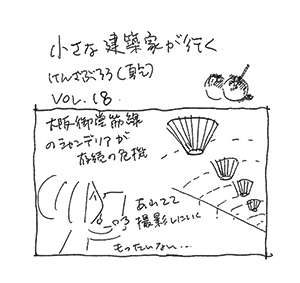 小さな建築家が行く
けんざぶろう(乾)
VOL.18
大阪御堂筋線
のシャンデリアが
存続の危機
あわてて
撮影しにいく
もったいない…